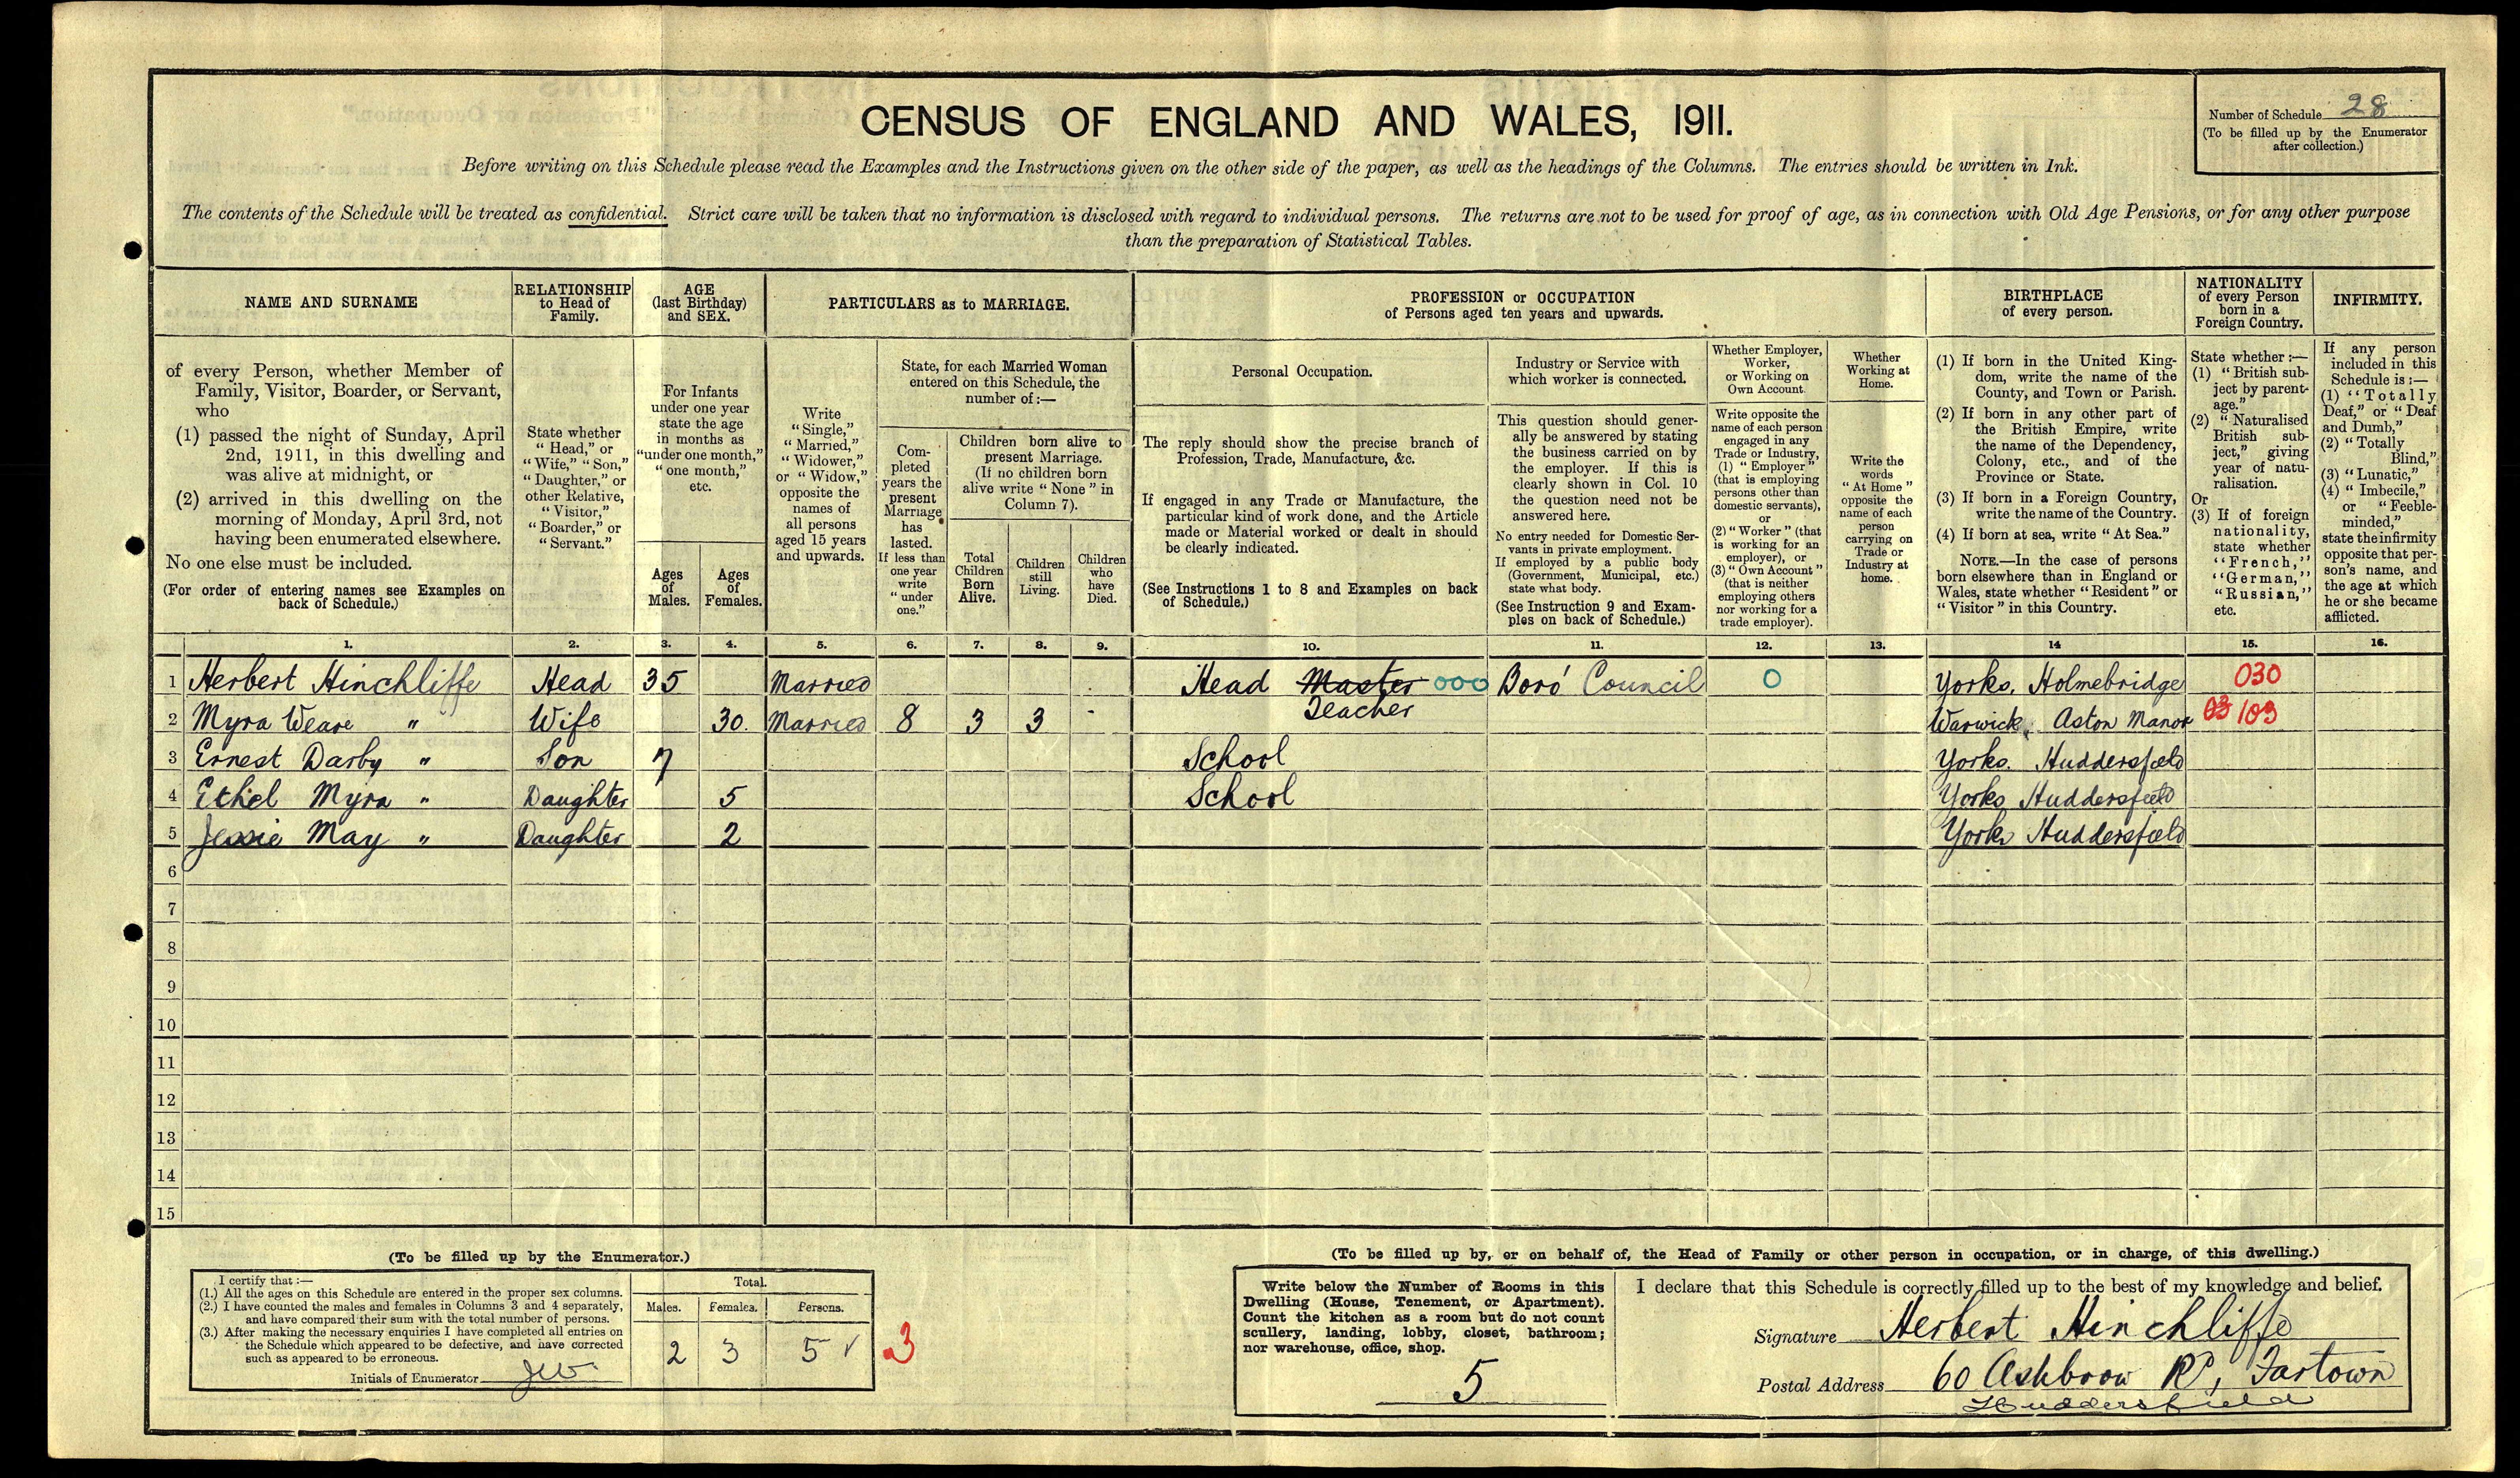 CENSUS OF ENGLAND AND WALES, 1911.
Number of Schedule 28
(To be filled up by the Enumerator
after collection.)
Before writing on this Schedule please read the Examples and the Instructions given on the other side of the paper, as well as the headings of the Columns. The entries should be written in Ink.
The contents of the Schedule will be treated as confidential. Strict care will be taken that no information is disclosed with regard to individual persons. The returns are not to be used for proof of age, as in connection with Old Age Pensions, or for any other purpose
than the preparation of Statistical Tables.
NAME AND SURNAME
of every Person, whether Member of
Family, Visitor, Boarder, or Servant,
who
(1) passed the night of Sunday, April
2nd, 1911, in this dwelling and
was alive at midnight, or
(2) arrived in this dwelling on the
morning of Monday, April 3rd, not
having been enumerated elsewhere.
No one else must be included.
(For order of entering names see Examples on
back of Schedule.)
RELATIONSHIP
to Head of
Family.
State whether
"Head," or
"Wife," "Son,"
"Daughter," or
other Relative,
"Visitor,"
"Boarder," or
"Servant."
AGE
(last Birthday)
and SEX.
For Infants
under one year
state the age
in months as
"under one month,"
"one month,"
etc.
Ages
of
Males.
Ages
of
Females.
PARTICULARS as to MARRIAGE.
Write
"Single,"
"Married,"
"Widower,"
or "Widow,"
opposite the
names of
all persons
aged 15 years
and upwards.
State, for each Married Woman
entered on this Schedule, the
number of:—
Com-
pleted
years the
present
Marriage
has
lasted.
If less than
one year
write
"under
one."
Children born alive to
present Marriage.
(If no children born
alive write "None" in
Column 7).
Total
Children
Born
Alive.
Children
still
Living.
Children
who
have
Died.
PROFESSION or OCCUPATION
of Persons aged ten years and upwards.
Personal Occupation.
The reply should show the precise branch of
Profession, Trade, Manufacture, &c.
If engaged in any Trade or Manufacture, the
particular kind of work done, and the Article
made or Material worked or dealt in should
be clearly indicated.
(See Instructions 1 to 8 and Examples on back
of Schedule.)
Industry or Service with
which worker is connected.
This question should gener-
ally be answered by stating
the business carried on by
the employer. If this is
clearly shown in Col. 10
the question need not be
answered here.
No entry needed for Domestic Ser-
vants in private employment.
If employed by a public body
(Government, Municipal, etc.)
state what body.
(See Instruction 9 and Exam-
ples on back of Schedule.)
Whether Employer,
Worker,
or Working on
Own Account.
Write opposite the
name of each person
engaged in any
Trade or Industry,
(1) "Employer"
(that is employing
persons other than
domestic servants),
or
(2) "Worker" (that
is working for an
employer), or
(3) "Own Account"
(that is neither
employing others
nor working for a
trade employer).
Whether
Working at
Home.
Write the
words
"At Home"
opposite the
name of each
person
carrying on
Trade or
Industry at
home.
BIRTHPLACE
of every person.
(1) If born in the United King-
dom, write the name of the
County, and Town or Parish.
(2) If born in any other part of
the British Empire, write
the name of the Dependency,
Colony, etc., and of the
Province or State.
(3) If born in a Foreign Country,
write the name of the Country.
(4) If born at sea, write "At Sea."
NOTE.—In the case of persons
born elsewhere than in England or
Wales, state whether "Resident" or
"Visitor" in this Country.
NATIONALITY
of every Person
born in a
Foreign Country.
State whether :—
(1) "British sub-
ject by parent-
age."
(2) "Naturalised
British sub-
ject," giving
year of natu-
ralisation.
Or
(3) If of foreign
nationality,
state whether
"French,"
"German,"
"Russian,"
etc.
INFIRMITY.
If any person
included in this
Schedule is :—
(1) "Totally
Deaf," or "Deaf
and Dumb,"
(2) "Totally
Blind,"
(3) "Lunatic,"
(4) "Imbecile,"
or "Feeble-
minded,"
state the infirmity
opposite that per-
son's name, and
the age at which
he or she became
afflicted.
1. 2. 3. 4. 5. 6. 7. 8. 9. 10. 11. 12. 13. 14 15. 16.
1 Herbert Hinchliffe Head 35 Married Head Master 000 Boro' Council 0 Yorks. Holmebridge 030
Teacher
2 Myra Weare " Wife 30. Married 8 3 3 - Warwick. Aston Manor 03 103
3 Ernest Darby " Son 7 School Yorks. Huddersfield
4 Ethel Myra " Daughter 5 School Yorks Huddersfield
5 Jessie May " Daughter 2 Yorks Huddersfield
6
7
8
9
10
11
12
13
14
15
(To be filled up by the Enumerator.)
I certify that :—
(1.) All the ages on this Schedule are entered in the proper sex columns.
(2.) I have counted the males and females in Columns 3 and 4 separately,
and have compared their sum with the total number of persons.
(3.) After making the necessary enquiries I have completed all entries on
the Schedule which appeared to be defective, and have corrected
such as appeared to be erroneous.
Initials of Enumerator
Total.
Males. Females. Persons.
2 3 5 ✓ 3
(To be filled up by, or on behalf of, the Head of Family or other person in occupation, or in charge, of this dwelling.)
Write below the Number of Rooms in this
Dwelling (House, Tenement, or Apartment).
Count the kitchen as a room but do not count
scullery, landing, lobby, closet, bathroom;
nor warehouse, office, shop.
5
I declare that this Schedule is correctly filled up to the best of my knowledge and belief.
Signature Herbert Hinchliffe
Postal Address 60 Ashbrow Rd, Fartown
Huddersfield